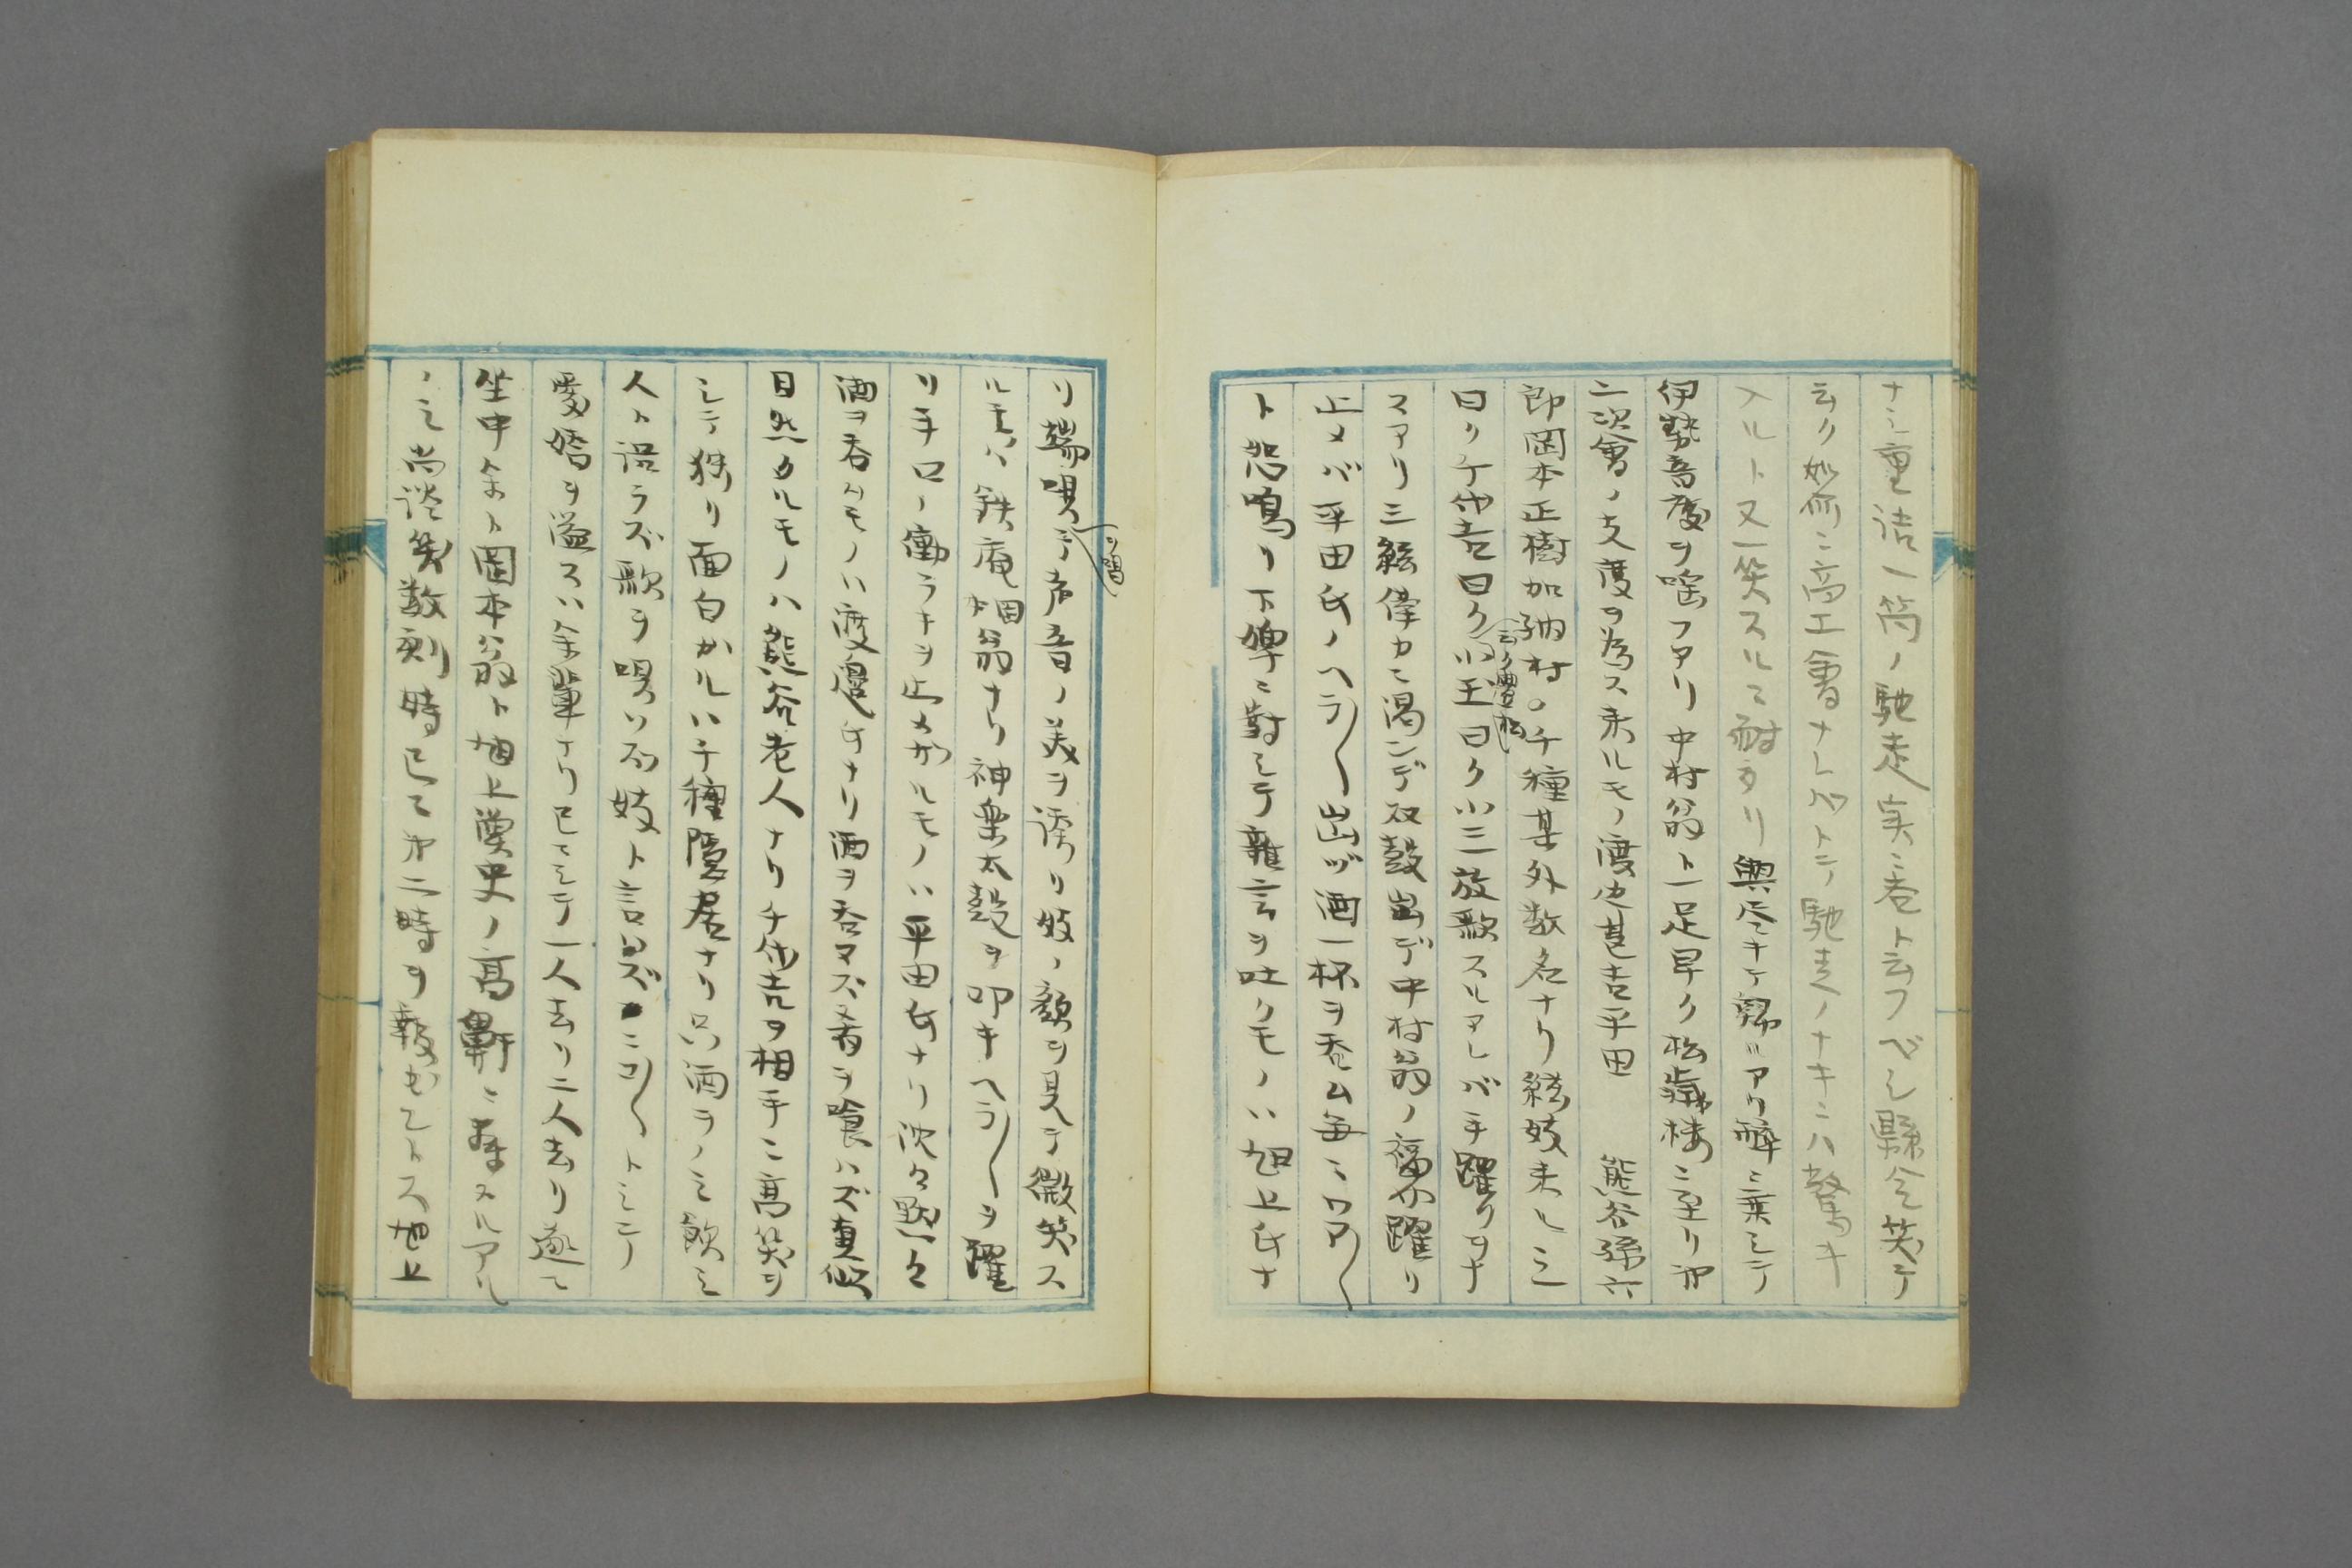 ナシ重詰一筒ノ馳走実ニ巻ト云フベシ縣令笑テ
云ク妙所ニ商工會ナレバトテ馳走ノナキニハ驚キ
入ルト又一笑スルニ耐タリ興尽ナテ歸ニアリ酔ニ乗シテ
伊勢音頭ヲ唱フアリ中村翁ト一足早ク松歳楼ニ至リ第
二次會ノ支度ヲ為ス来ルモノ渡辺甚吉平田 熊谷孫六
郎岡本正樹加納村○千種某外数名ナリ絃妓来ルミ
曰ク千代吉曰ク小玉曰ク小三放歌スルアレバ手躍リヲナ
スアリ三絃僅カニ渇ンデ双鼓出デ中村翁ノ福助躍リ
止メバ平田氏ノヘラ〱出ヅ酒一杯ヲ呑ム毎ニワア〱
ト怒鳴リ下婢ニ対シテ雑言ヲ吐クモノハ旭上氏ナ
リ端唄ヲ唱テ音ノ美ヲ誇リ妓ノ顔ヲ見テ微笑ス
ル者ハ鉄庵畑翁ナリ神楽太鼓ヲ叩キヘラ〱ヲ躍
リ手口ノ働ラキヲ止メザルモノハ平田氏ナリ沈々黙々
酒ヲ呑ムモノハ渡邊氏ナリ酒ヲ呑マズ肴ヲ喰ハズ真似
目然タルモノハ熊谷老人ナリ千代吉ヲ相手ニ高笑ヲ
シテ独リ面白ガルハ千種隠居ナリ只酒ヲノミ飲ミ
人ト語ラズ歌ヲ唄ハズ妓ト言ハズニコ〱トシテ
愛嬌ヲ溢スハ余輩ナリ已ニシテ一人去リ二人去リ遂ニ
坐中余ト岡本翁ト旭上漢史ノ高鼾ニ寿スルアル
ノミ尚談笑数刻時已ニ第二時ヲ報ゼントス旭上